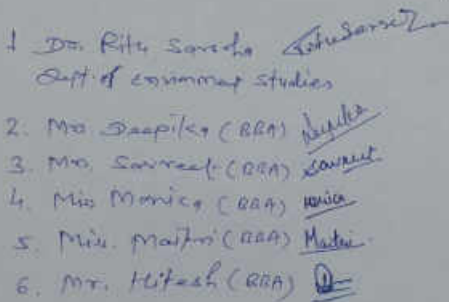 1 Dr. Ritu Sareha Ritu Sareh
Dept. of commerce studies
2. Mrs Deepika (BBA) Deepika
3. Mrs. Savreet (BBA) Savreet
4. Miss Monica (BBA) Monica
5. Miss. Maitri (BBA) Maitri
6. Mr. Hitesh (BBA)